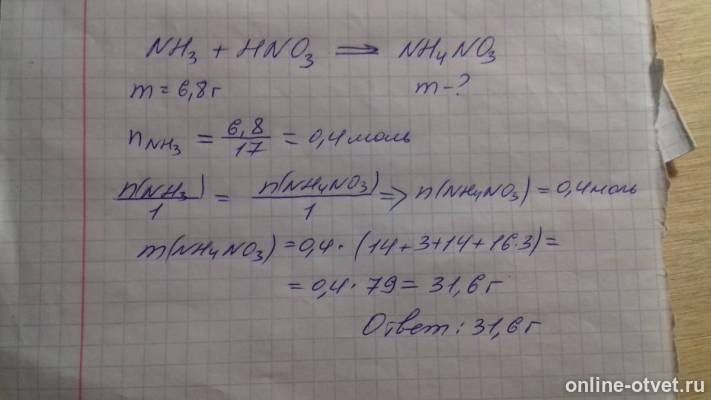 NH₃ + HNO₃ = NH₄NO₃
m = 6,8г m - ?
n NH₃ = 6,8/17 = 0,4 моль
n(NH₃)/1 = n(NH₄NO₃)/1 => n(NH₄NO₃) = 0,4 моль
m(NH₄NO₃) = 0,4 · (14+3+14+16·3) =
= 0,4 · 79 = 31,6 г
Ответ: 31,6 г
online-otvet.ru